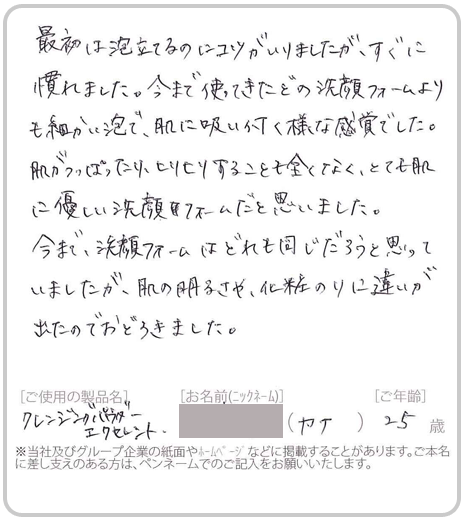 最初は泡立てるのにコツがいりましたが、すぐに
慣れました。今まで使ってきたどの洗顔フォームより
も細かい泡で、肌に吸い付く様な感覚でした。
肌がつっぱったり、ヒリヒリすることも全くなく、とても肌
に優しい洗顔フォームだと思いました。
今まで、洗顔フォームはどれも同じだろうと思って
いましたが、肌の明るさや、化粧のりに違いが
出たのでおどろきました。
[ご使用の製品名] [お名前(ニックネーム)] [ご年齢]
クレンジングパウダー
エクセレント. (カナ) 25 歳
※当社及びグループ企業の紙面やﾎｰﾑﾍﾟｰｼﾞなどに掲載することがあります。ご本名
に差し支えのある方は、ペンネームでのご記入をお願いいたします。